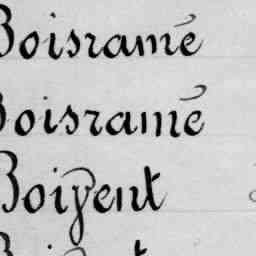 Boisramé
Boisramé
Boigent